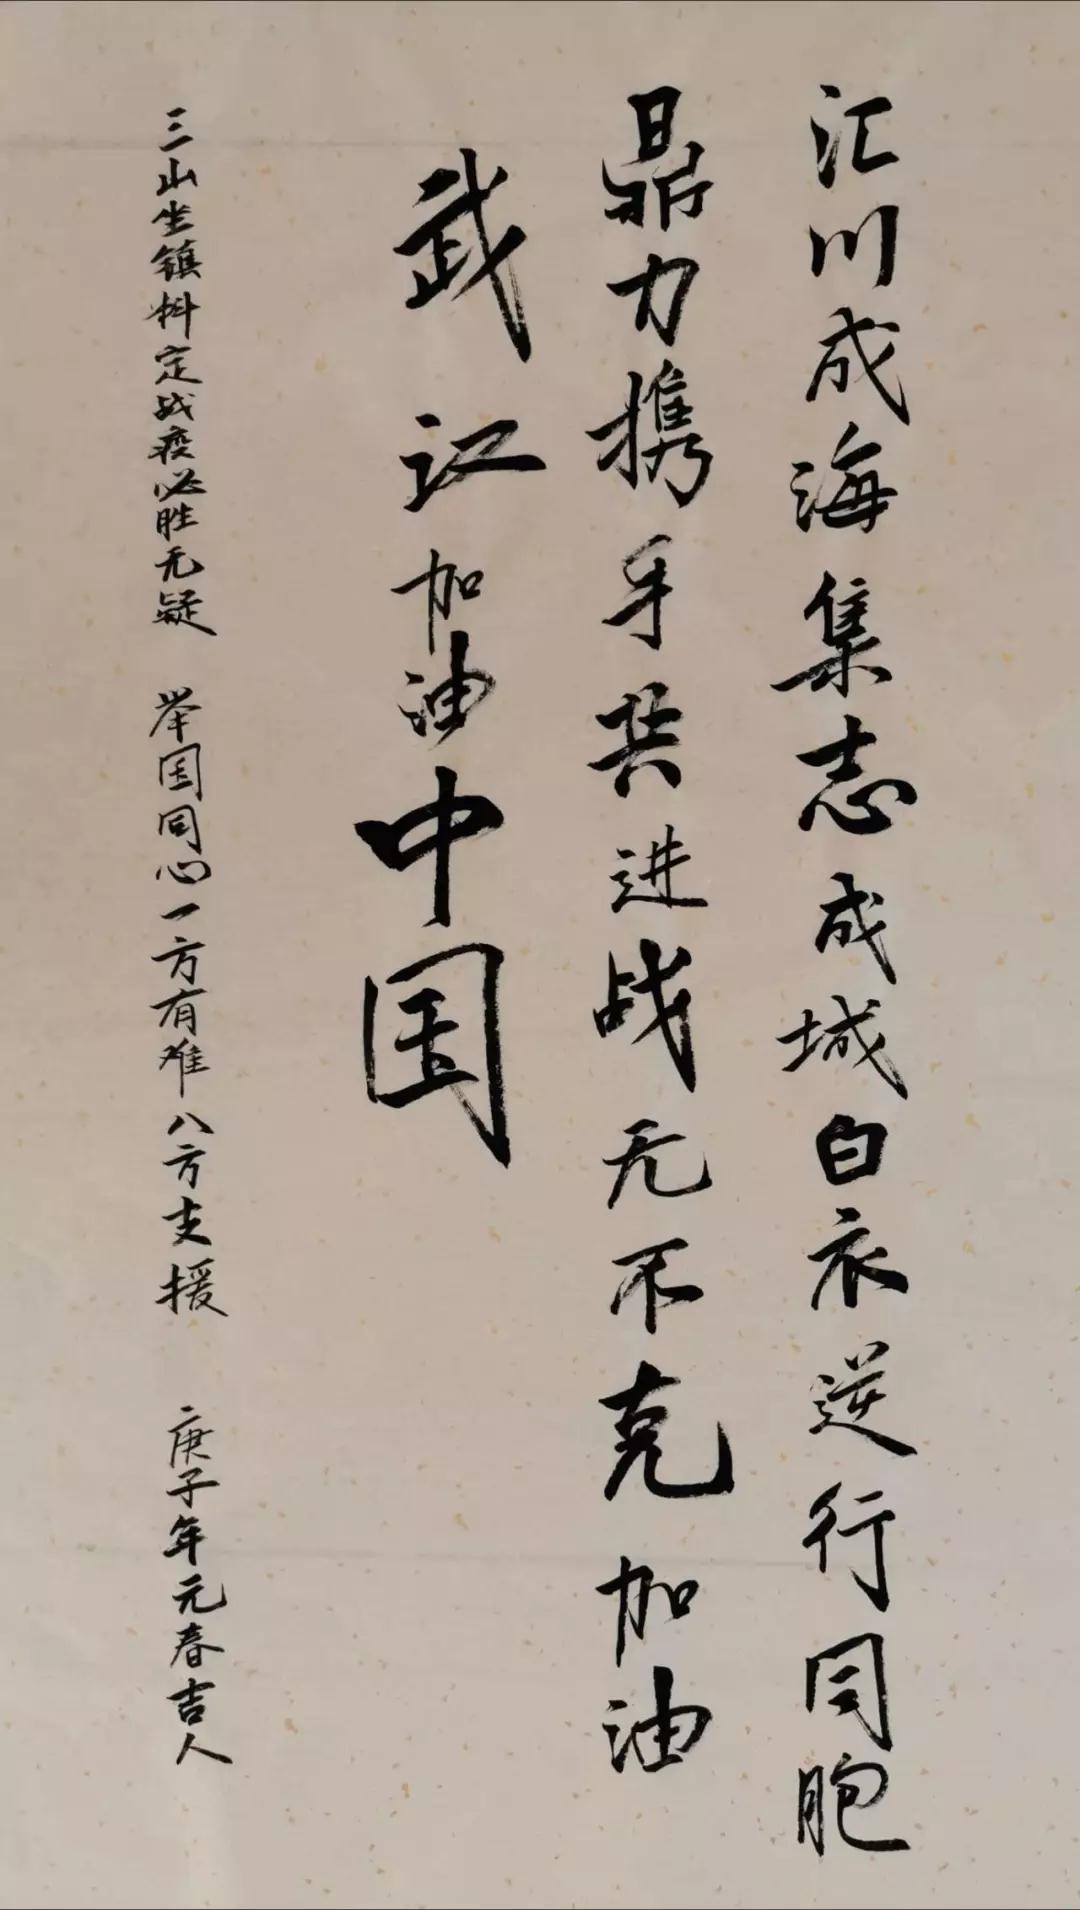 汇川成海集志成城白衣逆行同胞
鼎力携手共进战无不克加油
武江加油中国
三山坐镇料定战疫必胜无疑 举国同心一方有难八方支援 庚子年元春吉人